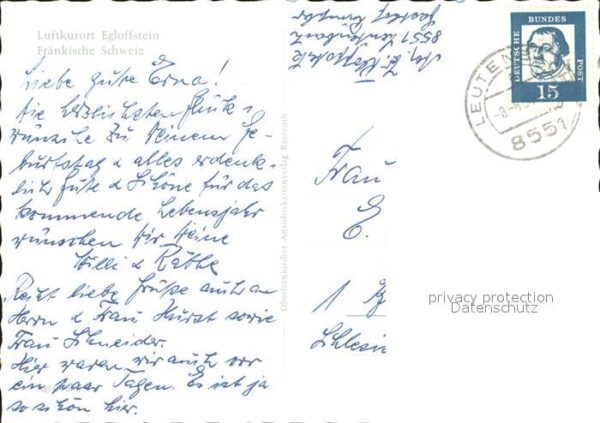 Luftkurort Egloffstein
Fränkische Schweiz
Liebe gute Erna!
Die herzlichsten Glück-
wünsche zu Deinem Ge-
burtstag & alles erdenk-
lich Gute & Schöne für das
kommende Lebensjahr
wünschen Dir Deine
Willi & Käthe
Recht liebe Grüße auch an
Herrn & Frau Hurst sowie
Frau Schneider.
Hier waren wir auch vor
ein paar Tagen. Es ist ja
so schön hier.
Oberfränkischer Ansichtskartenverlag Bayreuth
8551
DEUTSCHE BUNDES POST
15
LEUTEN
8551
Frau
E.
1
privacy protection
Datenschutz